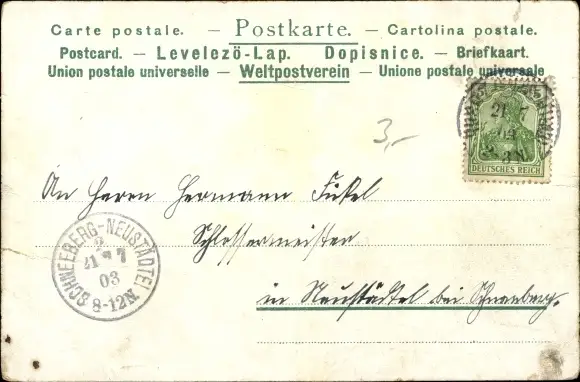 Carte postale. — Postkarte. — Cartolina postale.
Postcard. — Levelezö-Lap. Dopisnice. — Briefkaart.
Union postale universelle — Weltpostverein — Unione postale universale
21 7
03
DEUTSCHES REICH
3,-
An Herrn Hermann Fickel
Schlossermeister
in Neustädtel bei Schneeberg.
SCHNEEBERG-NEUSTÄDTEL
21 7
03
8-12N.